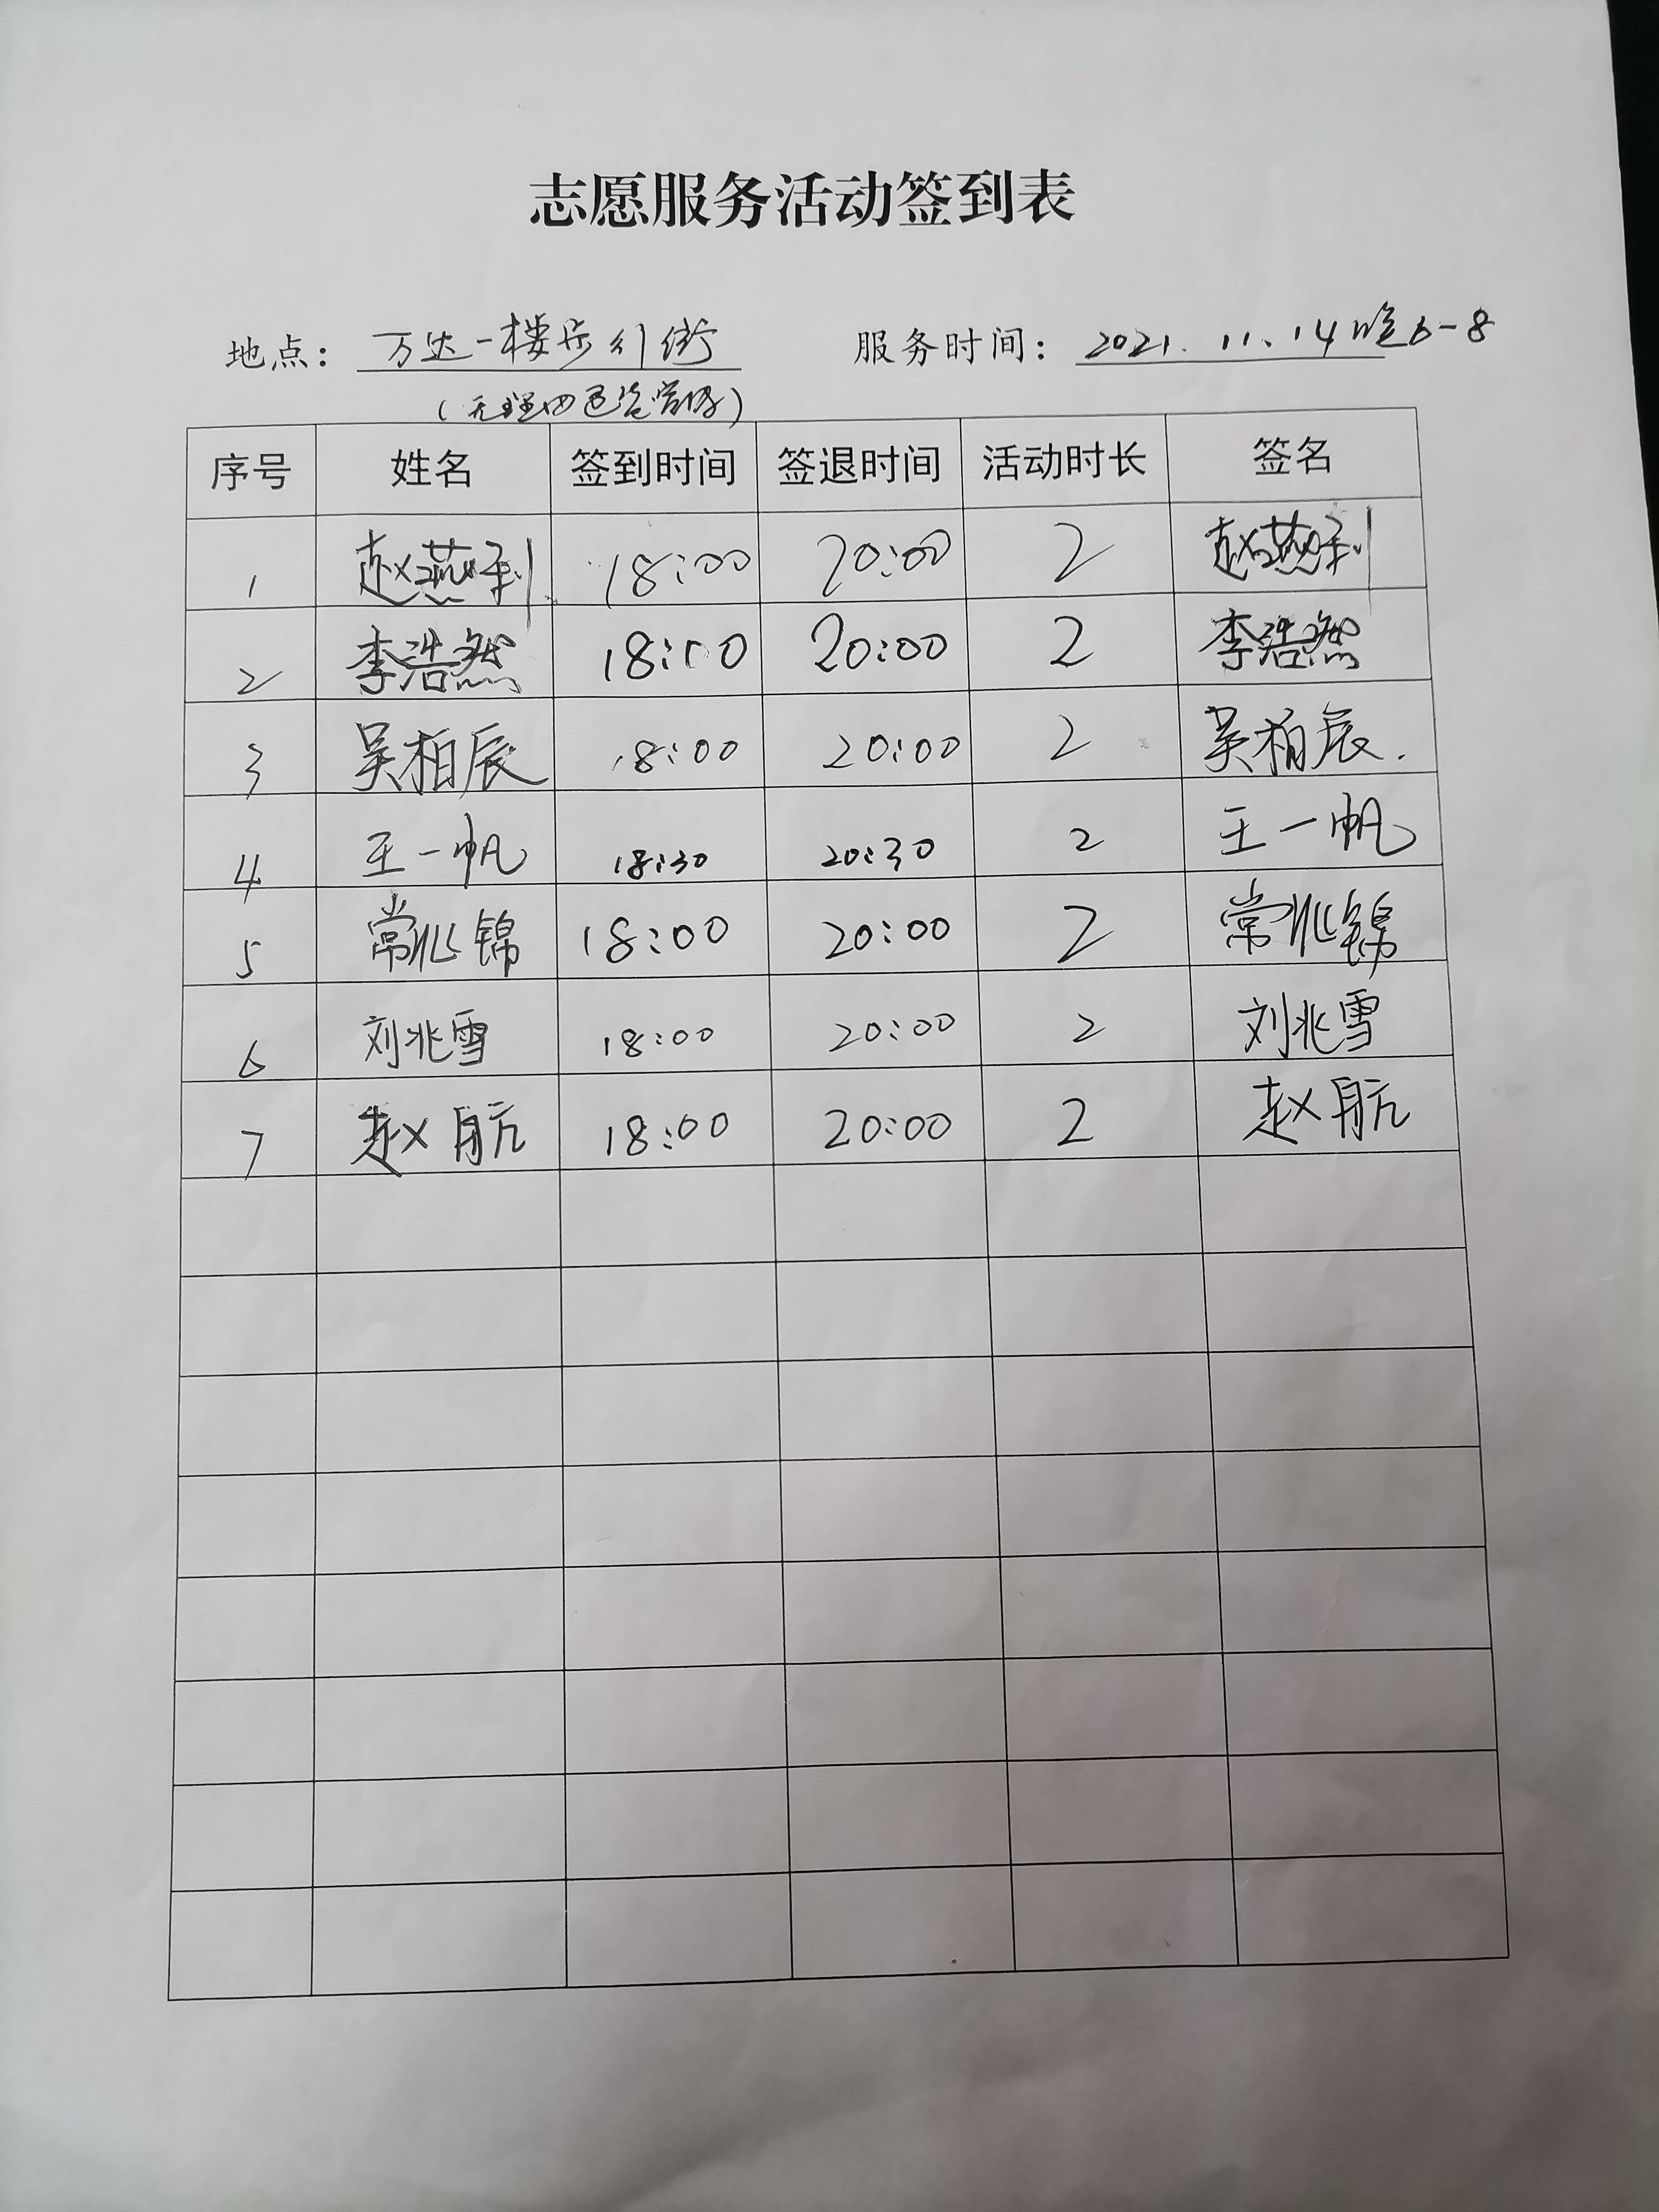 志愿服务活动签到表
地点：万达一楼步行街 服务时间：2021.11.14晚6-8
序号 姓名 签到时间 签退时间 活动时长 签名
1 赵燕利 18:00 20:00 2 赵燕利
2 李浩然 18:00 20:00 2 李浩然
3 吴柏辰 18:00 20:00 2 吴柏辰.
4 王一帆 18:30 20:30 2 王一帆
5 常兆锦 18:00 20:00 2 常兆锦
6 刘兆雪 18:00 20:00 2 刘兆雪
7 赵航 18:00 20:00 2 赵航